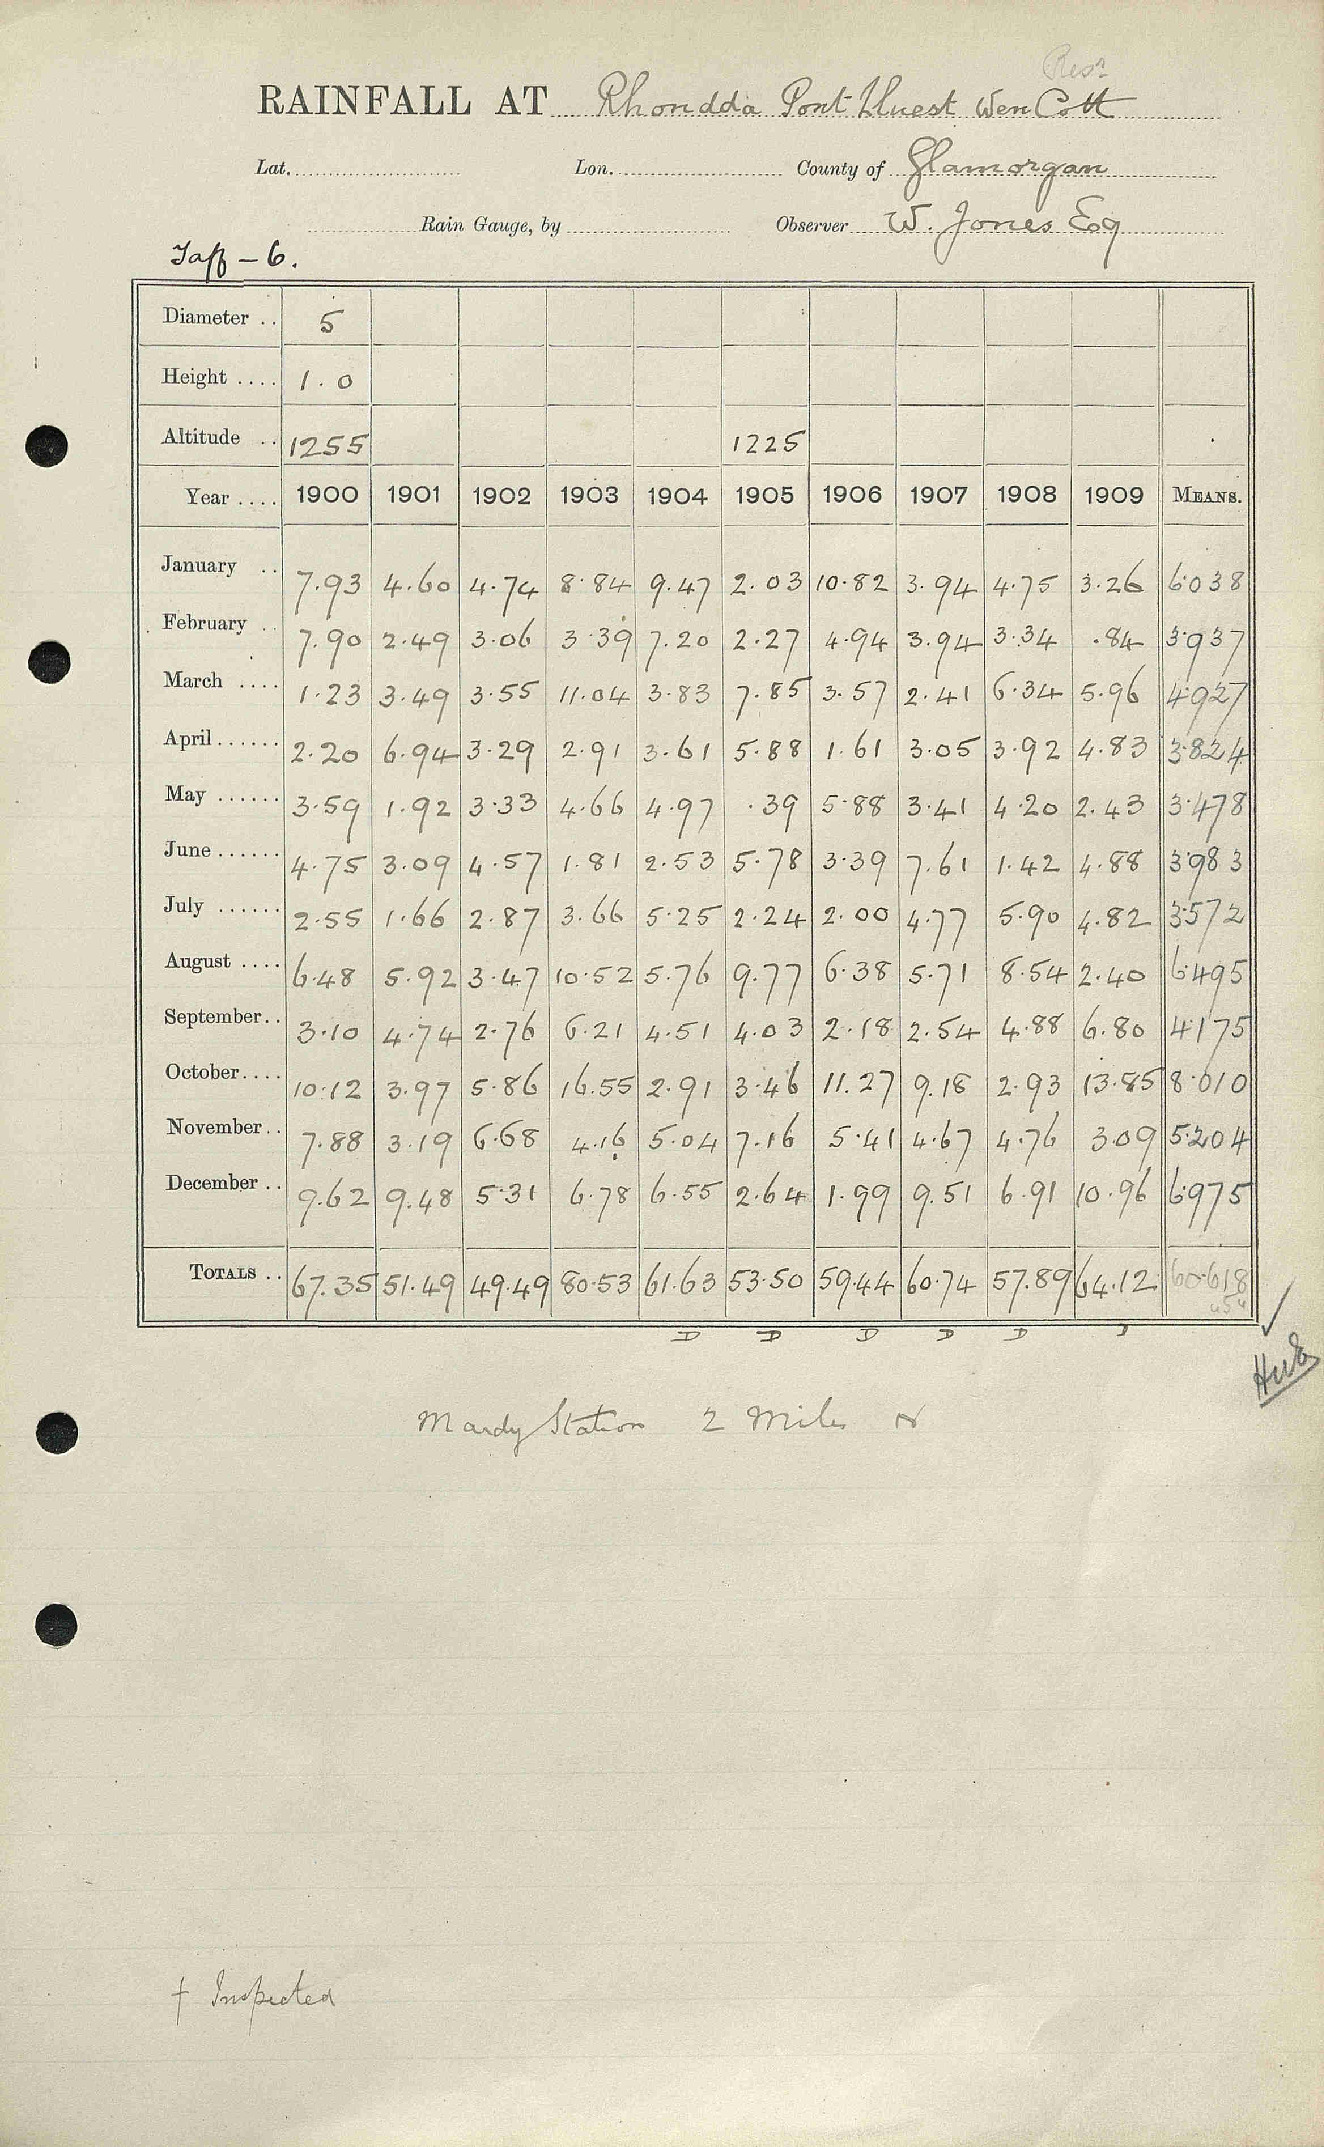 Resr
RAINFALL AT Rhondda Pont Lluest Wen Cott
Lat. Lon. County of Glamorgan
Rain Gauge, by Observer W. Jones Esq
Taff - 6.
Diameter .. 5
Height .... 1.0
Altitude .. 1255 1225
Year .... 1900 1901 1902 1903 1904 1905 1906 1907 1908 1909 MEANS.
January .. 7.93 4.60 4.74 8.84 9.47 2.03 10.82 3.94 4.75 3.26 6.038
February .. 7.90 2.49 3.06 3.39 7.20 2.27 4.94 3.94 3.34 .84 3.937
March .... 1.23 3.49 3.55 11.04 3.83 7.85 3.57 2.41 6.34 5.96 4.927
April...... 2.20 6.94 3.29 2.91 3.61 5.88 1.61 3.05 3.92 4.83 3.824
May ...... 3.59 1.92 3.33 4.66 4.97 .39 5.88 3.41 4.20 2.43 3.478
June...... 4.75 3.09 4.57 1.81 2.53 5.78 3.39 7.61 1.42 4.88 3.983
July ...... 2.55 1.66 2.87 3.66 5.25 2.24 2.00 4.77 5.90 4.82 3.572
August .... 6.48 5.92 3.47 10.52 5.76 9.77 6.38 5.71 8.54 2.40 6.495
September.. 3.10 4.74 2.76 6.21 4.51 4.03 2.18 2.54 4.88 6.80 4.175
October.... 10.12 3.97 5.86 16.55 2.91 3.46 11.27 9.18 2.93 13.85 8.010
November.. 7.88 3.19 6.68 4.16 5.04 7.16 5.41 4.67 4.76 3.09 5.204
December .. 9.62 9.48 5.31 6.78 6.55 2.64 1.99 9.51 6.91 10.96 6.975
TOTALS .. 67.35 51.49 49.49 80.53 61.63 53.50 59.44 60.74 57.89 64.12 60.618
D D D D D
Mardy Station 2 Miles N
† Inspected